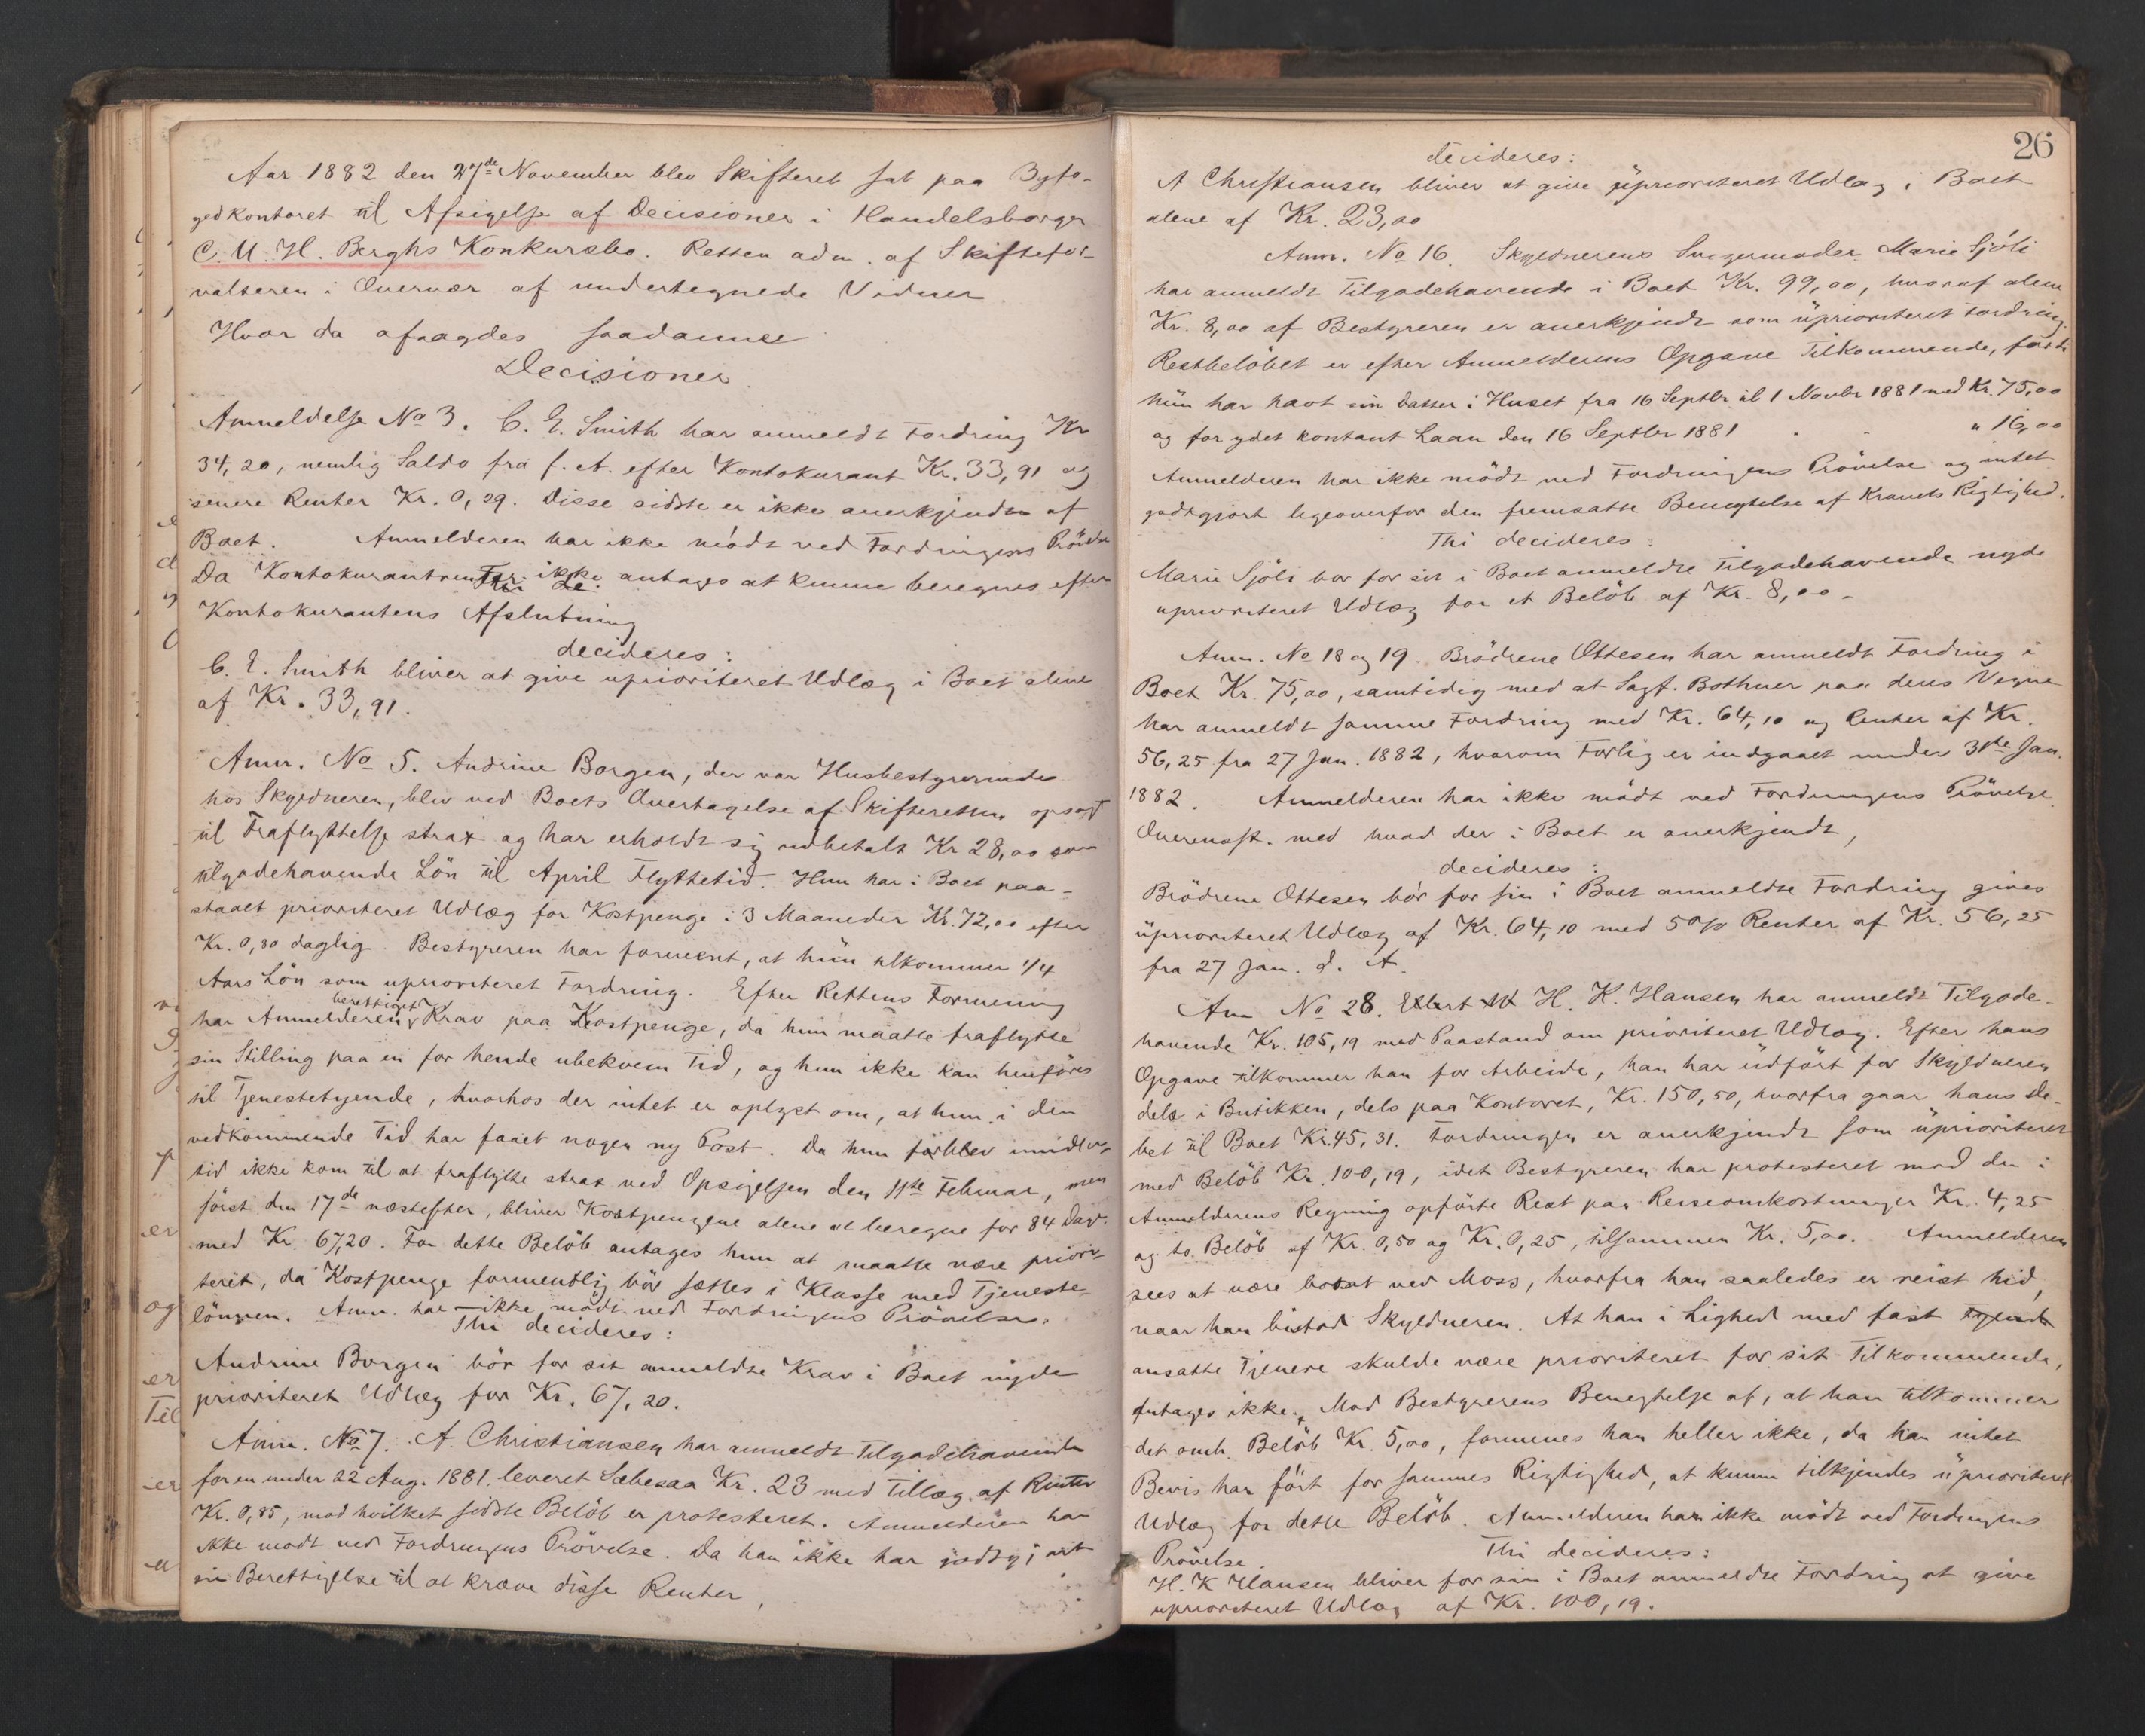 Aar 1882 den 27de November blev Skifteret sat paa Byfo-
gedkontoret til Afsigelse af Decisioner i Handelsborger
C. U. H. Berghs Konkursbo. Retten adm. af Skiftefor-
valteren i Overvær af undertegnede Vidner
Hvor da afsagdes saadanne
Decisioner
Anmeldelse No 3. C. E. Smith har anmeldt Fordring Kr
34,20, nemlig Saldo fra f. A. efter Kontokurant Kr. 33,91 og
senere Renter Kr. 0,29. Disse sidste er ikke anerkjendte af
Boet. Anmelderen har ikke mödt ved Fordringens Prövelse
Da Kontokurantrenter ikke antages at kunne beregnes efter
Kontokurantens Afslutning
decideres:
C. E. Smith bliver at give uprioriteret Udlæg i Boet alene
af Kr. 33,91.
Anm. No 5. Andrine Borgen, der var Husbestyrerinde
hos Skyldneren, blev ved Boets Overtagelse af Skifteretten opsagt
til Fraflyttelse strax og har erholdt sig udbetalt Kr 28,00 som
tilgodehavende Lön til April Flyttetid. Hun har i Boet paa-
staaet prioriteret Udlæg for Kostpenge i 3 Maaneder Kr. 72,00 efter
Kr. 0,80 daglig. Bestyreren har forment, at hun tilkommer 1/4
Aars Lön som uprioriteret Fordring. Efter Rettens Formening
har Anmelderen berettiget Krav paa Kostpenge, da hun maatte fraflytte
sin Stilling paa en for hende ubekvem Tid, og hun ikke kan henföres
til Tjenestetyende, hvorhos der intet er oplyst om, at hun i den
vedkommende Tid har faaet nogen ny Post. Da hun forblev imidler-
tid ikke kom til at fraflytte strax ved Opsigelsen den 11te Februar, men
först den 17de næstefter, bliver Kostpengene alene at beregne for 84 Dage
med Kr. 67,20. For dette Belöb antages hun at maatte være priori-
teret, da Kostpenge formentlig bör sættes i Klasse med Tjeneste-
lönnen. Anm. har ikke mödt ved Fordringens Prövelse.
Thi decideres:
Andrine Borgen bör for sit anmeldte Krav i Boet nyde
prioriteret Udlæg for Kr. 67,20.
Anm. No 7. A. Christiansen har anmeldt Tilgodehavende
for en under 22 Aug. 1881. leveret Kr. 23 med Tillæg af Renter
Kr. 0,85, mod hvilket sidste Belöb er protesteret. Anmelderen har
ikke mödt ved Fordringens Prövelse. Da han ikke har godtgjort
sin Berettigelse til at kræve disse Renter,
26
decideres:
A Christiansen bliver at give uprioriteret Udlæg i Boet
alene af Kr. 23,00
Anm. No 16. Skyldnerens Svigermoder Marie Sjöli
har anmeldt Tilgodehavende i Boet Kr. 99,00, hvoraf alene
Kr. 8,00 af Bestyreren er anerkjendt som uprioriteret Fordring.
Restbelöbet er efter Anmelderens Opgave Tilkommende, fordi
hun har havt sin Datter i Huset fra 16 Septbr til 1 Novbr 1881 med Kr. 75,00
og for ydet kontant Laan den 16 Septbr 1881 " 16,00
Anmelderen har ikke mödt ved Fordringens Prövelse og intet
godtgjort ligeoverfor den fremsatte Benegtelse af Kravets Rigtighed.
Thi decideres:
Marie Sjöli bör for sit i Boet anmeldte Tilgodehavende nyde
uprioriteret Udlæg for et Belöb af Kr. 8,00.
Anm. No 18 og 19. Brödrene Ottesen har anmeldt Fordring i
Boet Kr. 75,00, samtidig med at Sagf. Bothner paa deres Vegne
har anmeldt samme Fordring med Kr. 64,10 og Renter af Kr.
56,25 fra 27 Jan. 1882, hvorom Forlig er indgaaet under 31te Jan.
1882. Anmelderen har ikke mödt ved Fordringens Prövelse
Overensst. med hvad der i Boet er anerkjendt,
decideres:
Brödrene Ottesen bör for sin i Boet anmeldte Fordring gives
uprioriteret Udlæg af Kr. 64,10 med 5 o/o Renter af Kr. 56,25
fra 27 Jan. d. A.
Anm No 28. H. K. Hansen har anmeldt Tilgode-
havende Kr. 105,19 med Paastand om prioriteret Udlæg. Efter hans
Opgave tilkommer han for Arbeide, han har udfört for Skyldneren
dels i Butikken, dels paa Kontoret, Kr. 150,50, hvorfra gaar hans De-
bet til Boet Kr. 45,31. Fordringen er anerkjendt som uprioriteret
med Belöb Kr. 100,19, idet Bestyreren har protesteret mod den i
Anmelderens Regning opförte Rest paa Reiseomkostninger Kr. 4,25
og to Belöb af Kr. 0,50 og Kr. 0,25, tilsammen Kr. 5,00. Anmelderen
sees at være bosat ved Moss, hvorfra han saaledes er reist hid,
naar han bistod Skyldneren. At han i Lighed med fast
ansatte Tjenere skulde være prioriteret for sit Tilkommende,
antages ikke. Mod Bestyrerens Benegtelse af, at han tilkommer
det omh. Belöb Kr. 5,00, formenes han heller ikke, da han intet
Bevis har fört for sammes Rigtighed, at kunne tilkjendes uprioriteret
Udlæg for dette Belöb. Anmelderen har ikke mödt ved Fordringens
Prövelse.
Thi decideres:
H. K Hansen bliver for sin i Boet anmeldte Fordring at give
uprioriteret Udlæg af Kr. 100,19.